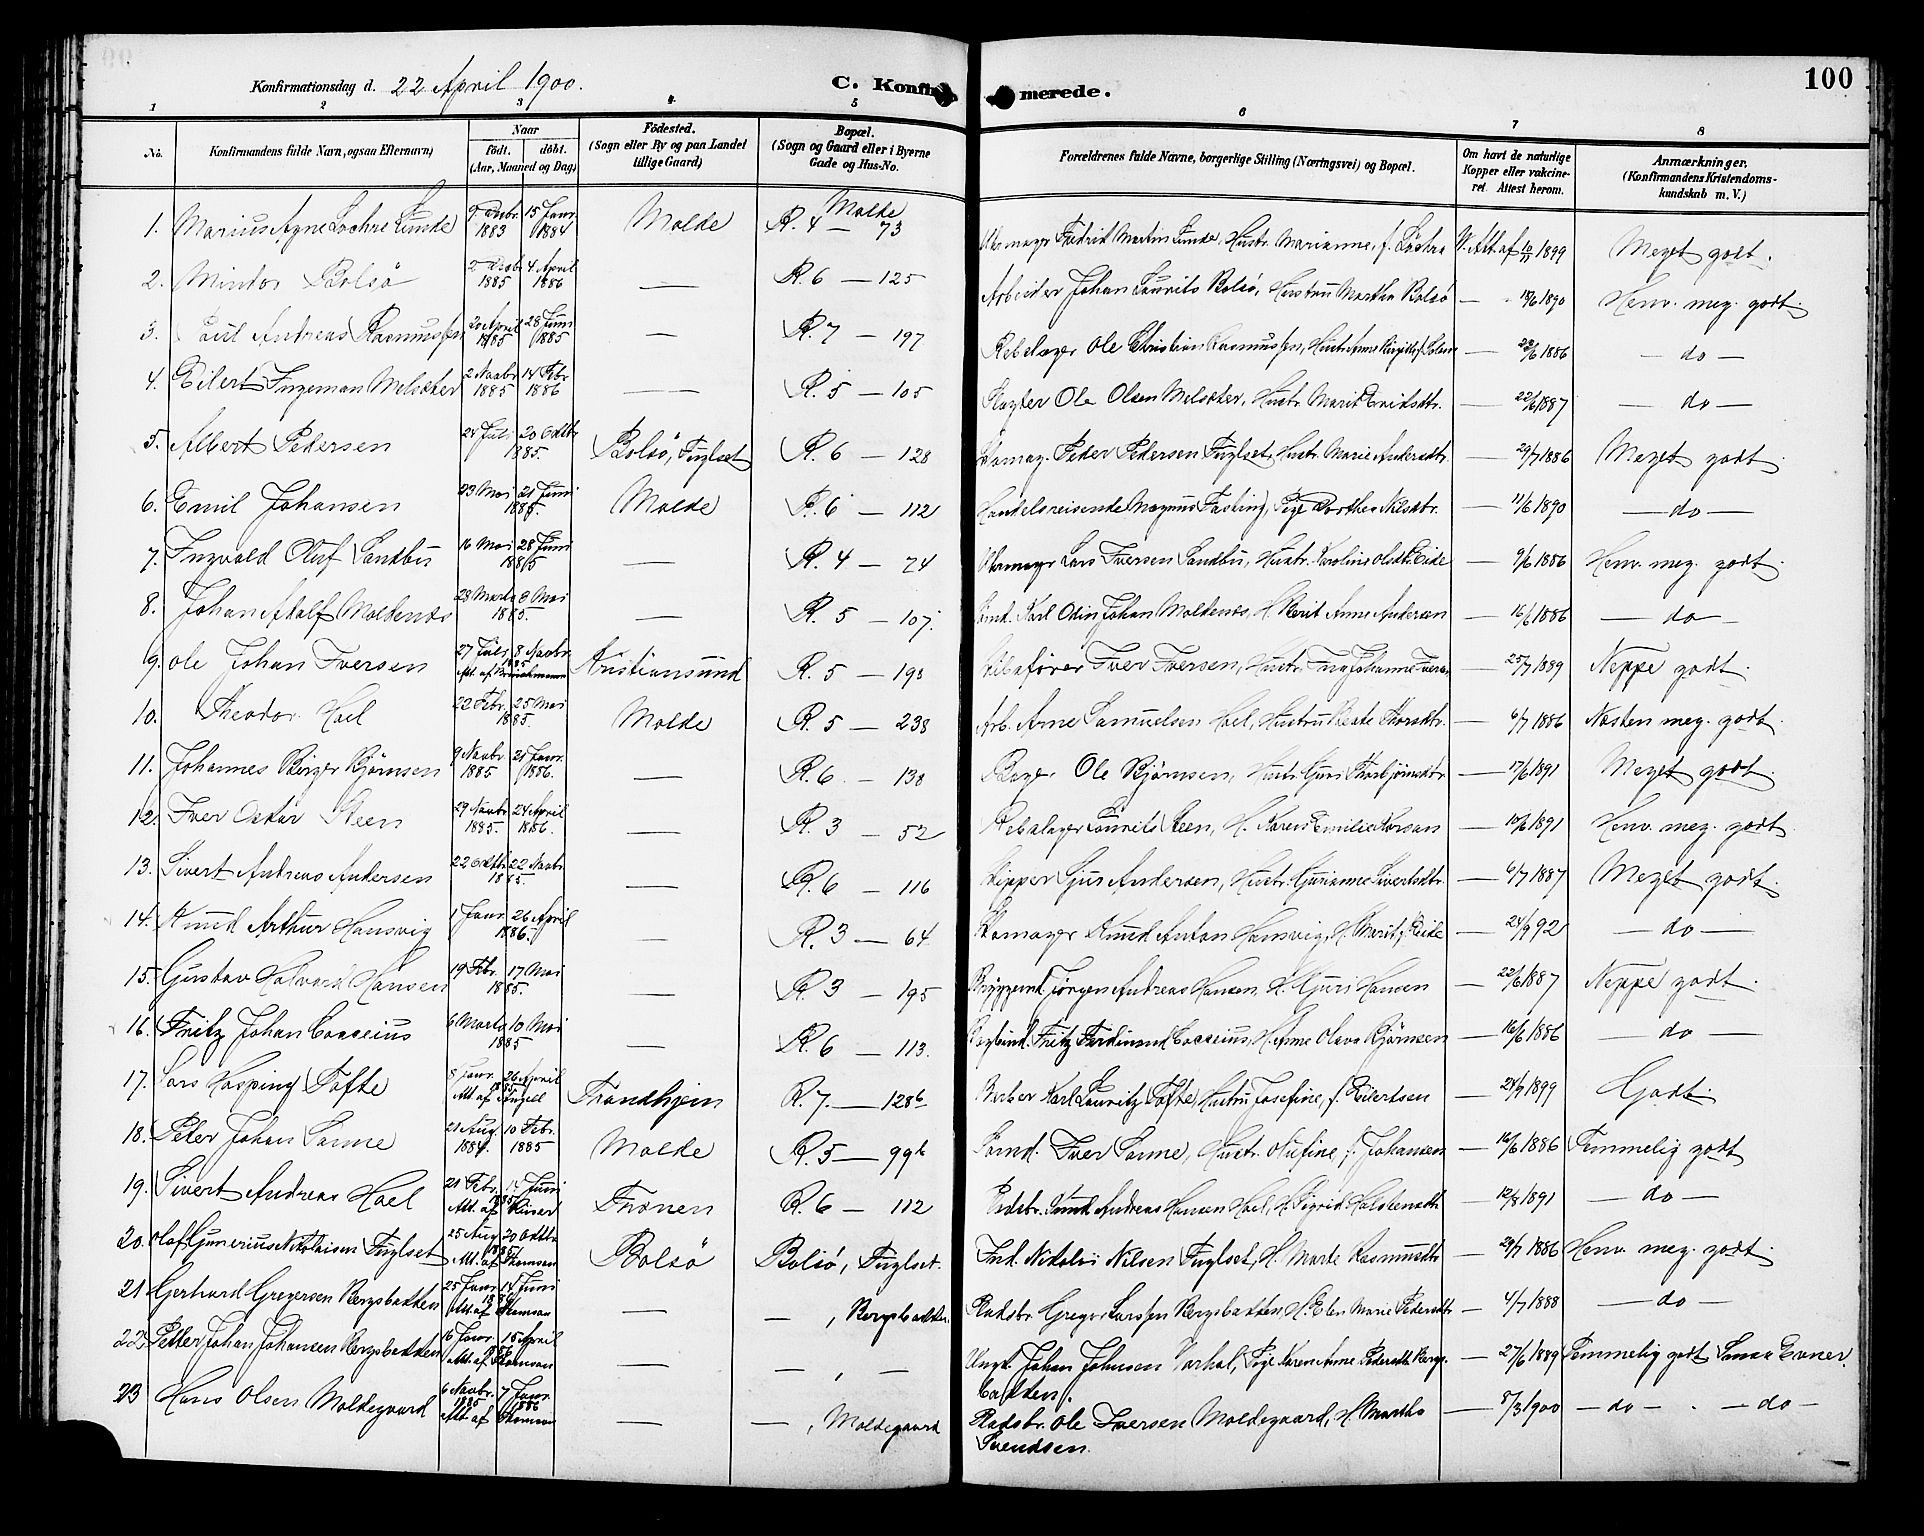 100
Konfirmationsdag d. 22 April 1900.
C. Konfirmerede.
1 2 3 4 5 6 7 8
No. | Konfirmandens fulde Navn, ogsaa Efternavn) | Naar født. døbt. (Aar, Maaned og Dag) | Fødested. (Sogn eller By og paa Landet tillige Gaard) | Bopæl. (Sogn og Gaard eller i Byerne Gade og Hus-No. | Forældrenes fulde Navne, borgerlige Stilling (Næringsvei) og Bopæl. | Om havt de naturlige Kopper eller vakcineret. Attest herom. | Anmærkninger. (Konfirmandens Kristendomskundskab m. V.)
1. Marius Agne Lochre Lunde | 9 Decbr. 1883 | 15 Janr. 1884 | Molde | Molde R. 4 — 73 | Skomagr Fredrik Martin Lunde, Hustr. Marianne, f. Løchra | V. Att. af 1899 | Meget godt.
2. Bolsö | 2 Decbr 1885 | 4 April 1886 | — | R. 6 — 125 | Arbeider Johan Laurits Bolsö, Hustru Martha Bolsö | — 18/6 1890 | Henv. meg. godt.
3. Paul Andreas Rasmussen | 20 April 1885 | 28 Juni 1885 | — | R. 7 — 197 | Rebslager Ole Christian Rasmussen, Hustr. Anne Birgitte f. | — 22/6 1886 | — do —
4. Eilert Ingeman Melsæter | 2 Novbr 1885 | 14 Febr 1886 | — | R. 5 — 105 | Slagter Ole Olsen Melsæter, Hustr. Marit | — 22/6 1887 | — do —
5. Albert Pedersen | 24 Juli | 20 Octbr 1885. | Bolsö, Fuglset | R. 6 — 128 | Skomag. Peder Pedersen Fuglset, Hustr. Marie Andersdtr. | — 29/7 1886 | Meget godt.
6. Emil Johansen | 23 Mai | 21 Juni 1885. | Molde | R. 6 — 112 | Handelsreisende Magnus Fasting, Pige Dorthea Nilsdtr. | — 11/6 1890 | — do —
7. Ingvald Oluf Sandbu | 16 Mai | 28 Juni 1885 | — | R. 4 — 74 | Skomagr Lars Iversen Sandbu, Hustr. Karoline Olsdtr. Eide | — 9/6 1886 | Henv. meg. godt.
8. Johan Adolf Moldenæs | 28 Marts | 8 Mai 1885. | — | R. 5 — 107. | Sømd. Karl Odin Johan Moldenæs, H. Berit Anne Andersen | — 16/6 1886 | — do —
9. Ole Johan Iversen | 27 Juli | 8 Novbr 1885 Att. af | Kristiansund | R. 5 — 198 | Iver Iversen, Hustr. | — 25/7 1889 | Neppe godt.
10. Theodor Hoel | 22 Febr. | 25 Mai 1885. | Molde | R. 5 — 238 | Arb. Arne Samuelsen Hoel, Hustru Beate Thorsdtr. | — 6/7 1886 | Næsten meg. godt.
11. Johannes Birger Bjørnsen | 9 Novbr 1885 | 21 Janr. 1886. | — | R. 6 — 138 | Bager Ole Bjørnsen, Hustr. Guri Thorbjørnsdtr. | — 17/6 1891 | Meget godt.
12. Iver Oskar Steen | 29 Novbr 1885. | 24 April 1886. | — | R. 3 — 52 | Rebslager Laurits Steen, H. Karen Emilie Korsan | — 10/6 1891 | Henv. meg. godt
13. Sivert Andreas Andersen | 22 Octbr | 22 Novbr. 1885. | — | R. 6 — 116 | Skipper Sjur Andersen, Hustr. Gurianne Sivertsdtr. | — 6/7 1887 | Meget godt.
14. Knud Arthur Hansvig | 1 Janr. | 26 April 1886. | — | R. 3 — 64 | Skomager Knud Anton Hansvig, H. Marit f. Eide | — 24/9 92 | — do —
15. Gustav Halvard Hansen | 19 Febr. | 17 Mai 1885. | — | R. 3 — 195 | Bryggemd Jørgen Andreas Hansen, H. Guri Hansen | — 22/6 1887 | Neppe godt.
16. Fritz Johan Cocceius | 6 Marts | 10 Mai 1885 | — | R. 6 — 113. | Bogbind. Fritz Ferdinand Cocceius, H. Anne Olava Bjørnsen | — 16/6 1886 | — do —
17. Lars Kasping Tofte | 8 Janr. | 26 April 1885 Att. af Angell | Trondhjem | R. 7. — 128b | Barber Karl Lauritz Tofte, Hustru Josefine, f. Eilertsen | — 24/7 1899 | Godt.
18. Peter Johan Sanne | 21 Aug. 1884. | 10 Febr. 1885 | Molde | R. 5 — 99b | Sømd. Iver Sanne, Hustr. Olufine, f. Johansen | — 16/6 1886 | Temmelig godt
19. Sivert Andreas Hoel | 21 Febr. | 14 Juni 1885 Att. af | Tronen | R. 6 — 112 | Pladsbr. Knud Andreas Hansen Hoel, H. Sigrid Halstensdtr | — 12/8 1891 | — do —
20. Olaf Gunerius Nikolaisen Fuglset | 25 Aug | 20 Octbr 1885 Att. af Thomsen | Bolsö | Bolsö, Fuglset. | Ind. Nikolai Nilsen Fuglset, H. Marte Rasmusdtr | — 29/7 1886 | Henv. meg. godt.
21 Gerhard Gregersen Bergsbakken | 25 Janr | 14 Juni 1886 Att. af Thomsen | — | — , Bergsbakken. | Pladsbr. Gregor Larssen Bergsbakken, H. Elen Marie Pedersdtr | — 4/7 1888 | — do —
22. Petter Johan Johansen Bergsbakken | 16 Janr. | 15 April 1886 Att. af Thomsen | — | — , — | Ungk. Johan Johnsen Varhol, Pige Karen Anne Pedersdtr. Bergsbakken. | — 27/6 1889 | Temmelig godt Evner.
23 Hans Olsen Moldegaard | 6 Novbr. 1885 | 7 Janr. 1886 Att. af Thomsen | — | — , Moldegaard | Pladsbr. Ole Iversen Moldegaard, H. Martha Svendsen. | — 8/3 1900 | — do — . — do —